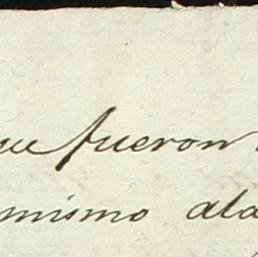 que fueron
mismo ala